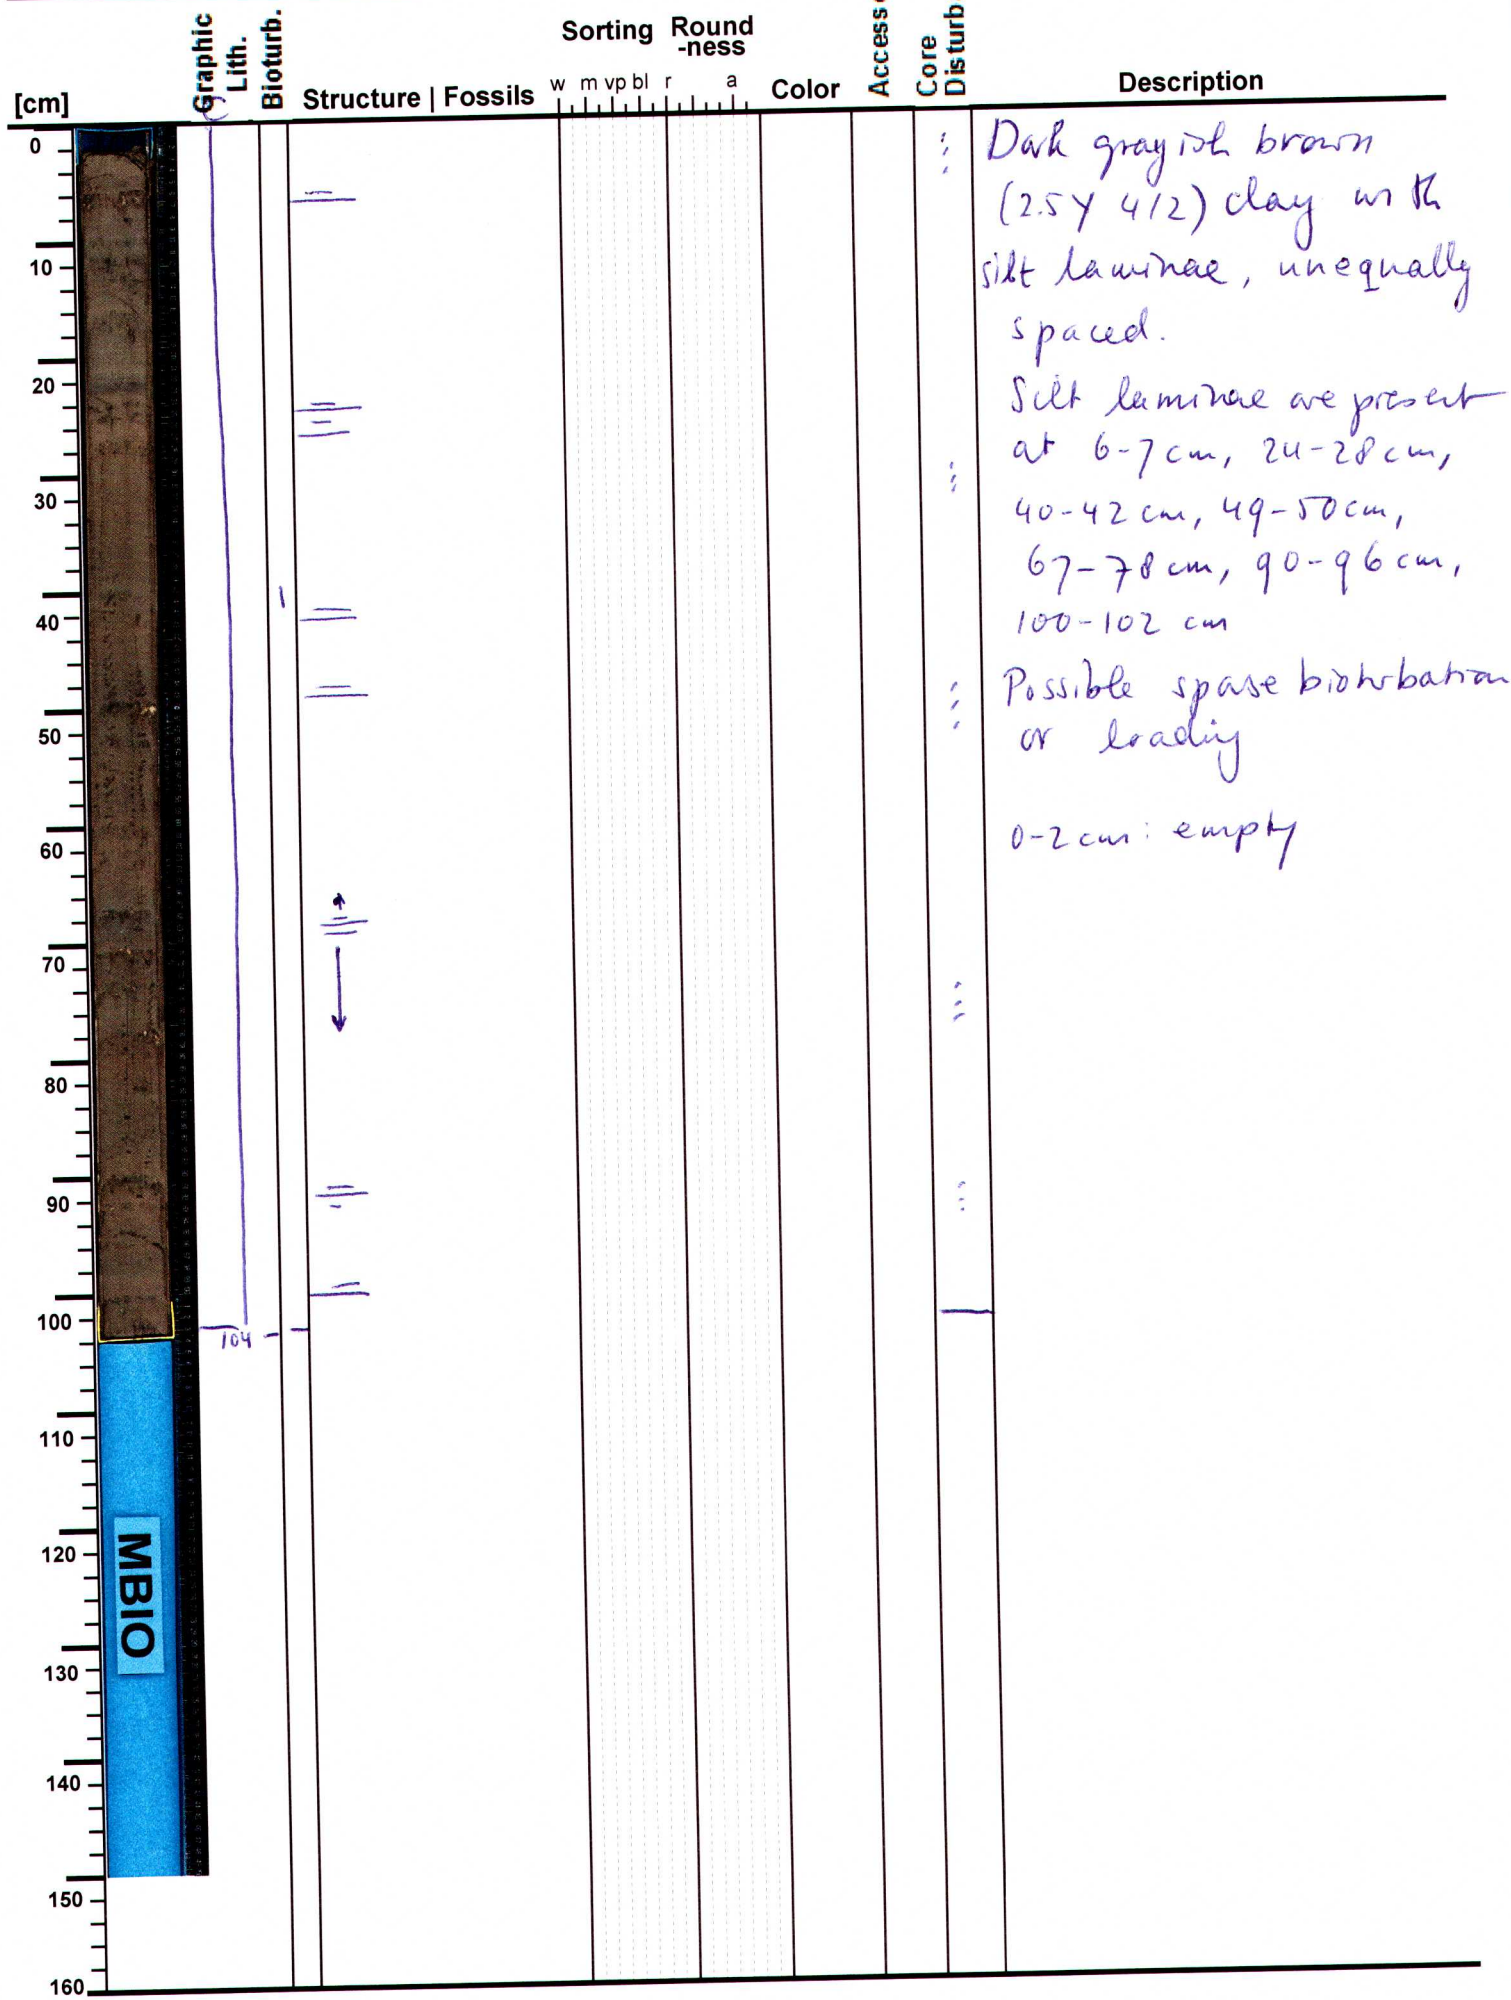 Graphic Lith.
Bioturb.
Sorting Round
-ness
Core
Disturb
[cm] Structure | Fossils w m vp bl r a Color Access Description
0
10
20
30
40
50
60
70
80
90
100
110
120
130
140
150
160
1
104
MBIO
Dark grayish brown
(2.5Y 4/2) clay with
silt laminae, unequally
spaced.
Silt laminae are present
at 6-7 cm, 24-28 cm,
40-42 cm, 49-50 cm,
67-78 cm, 90-96 cm,
100-102 cm
Possible spase bioturbation
or loading
0-2 cm: empty